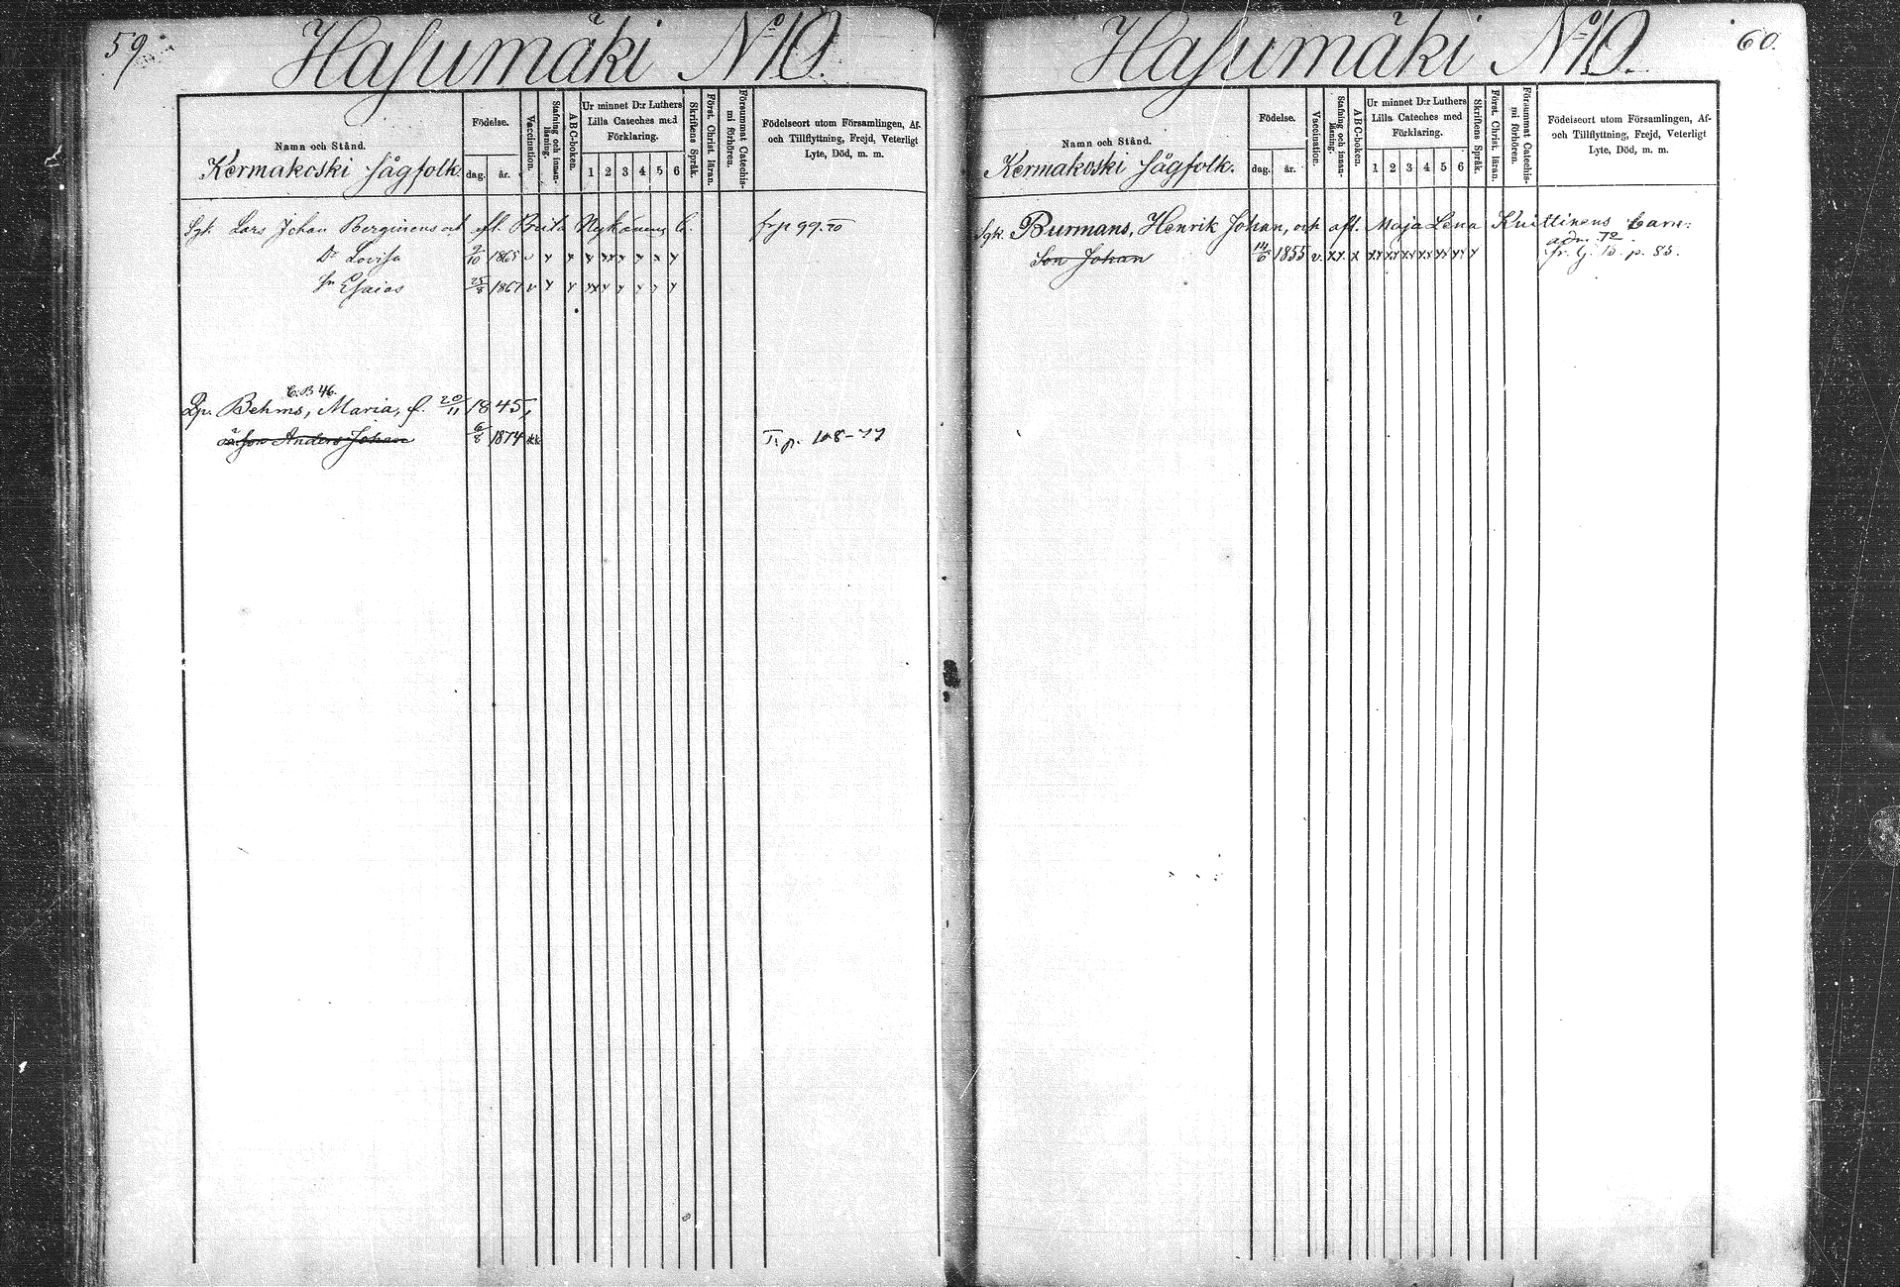 59.
Hasumäki No 10.
Namn och Stånd.
Kermakoski sågfolk.
Födelse.
dag. år.
Vaccination.
Stafning och innan-läsning.
ABC-boken.
Ur minnet D:r Luthers
Lilla Cateches med
Förklaring.
1 2 3 4 5 6
Skriftens Språk.
Först. Christ. läran.
Försummat Catechis-
mi förhören.
Födelseort utom Församlingen, Af-
och Tillflyttning, Frejd, Veterligt
Lyte, Död, m. m.
Sgk. Lars Johan Berginens och aft. Brita Nykänens b. frp 99.70
Dr Lovisa 9/10 1865 v x x x xx x x x x
Sn Esaias 25/8 1867 v x x xx x x x x x
C.B 46.
Lp. Behms, Maria, f. 20/11 1845,
oä. son Anders Johan 6/8 1874 T. p. 108-77
60.
Hasumäki No 10.
Namn och Stånd.
Kermakoski sågfolk.
Födelse.
dag. år.
Vaccination.
Stafning och innan-läsning.
ABC-boken.
Ur minnet D:r Luthers
Lilla Cateches med
Förklaring.
1 2 3 4 5 6
Skriftens Språk.
Först. Christ. läran.
Försummat Catechis-
mi förhören.
Födelseort utom Församlingen, Af-
och Tillflyttning, Frejd, Veterligt
Lyte, Död, m. m.
Sgk. Burmans, Henrik Johan, och aft. Maja Lena Knittinens barn:
Son Johan 14/6 1855 v. xx x xx xx xx xx xx x x adm. 72
fr. Lj. B. p. 83.